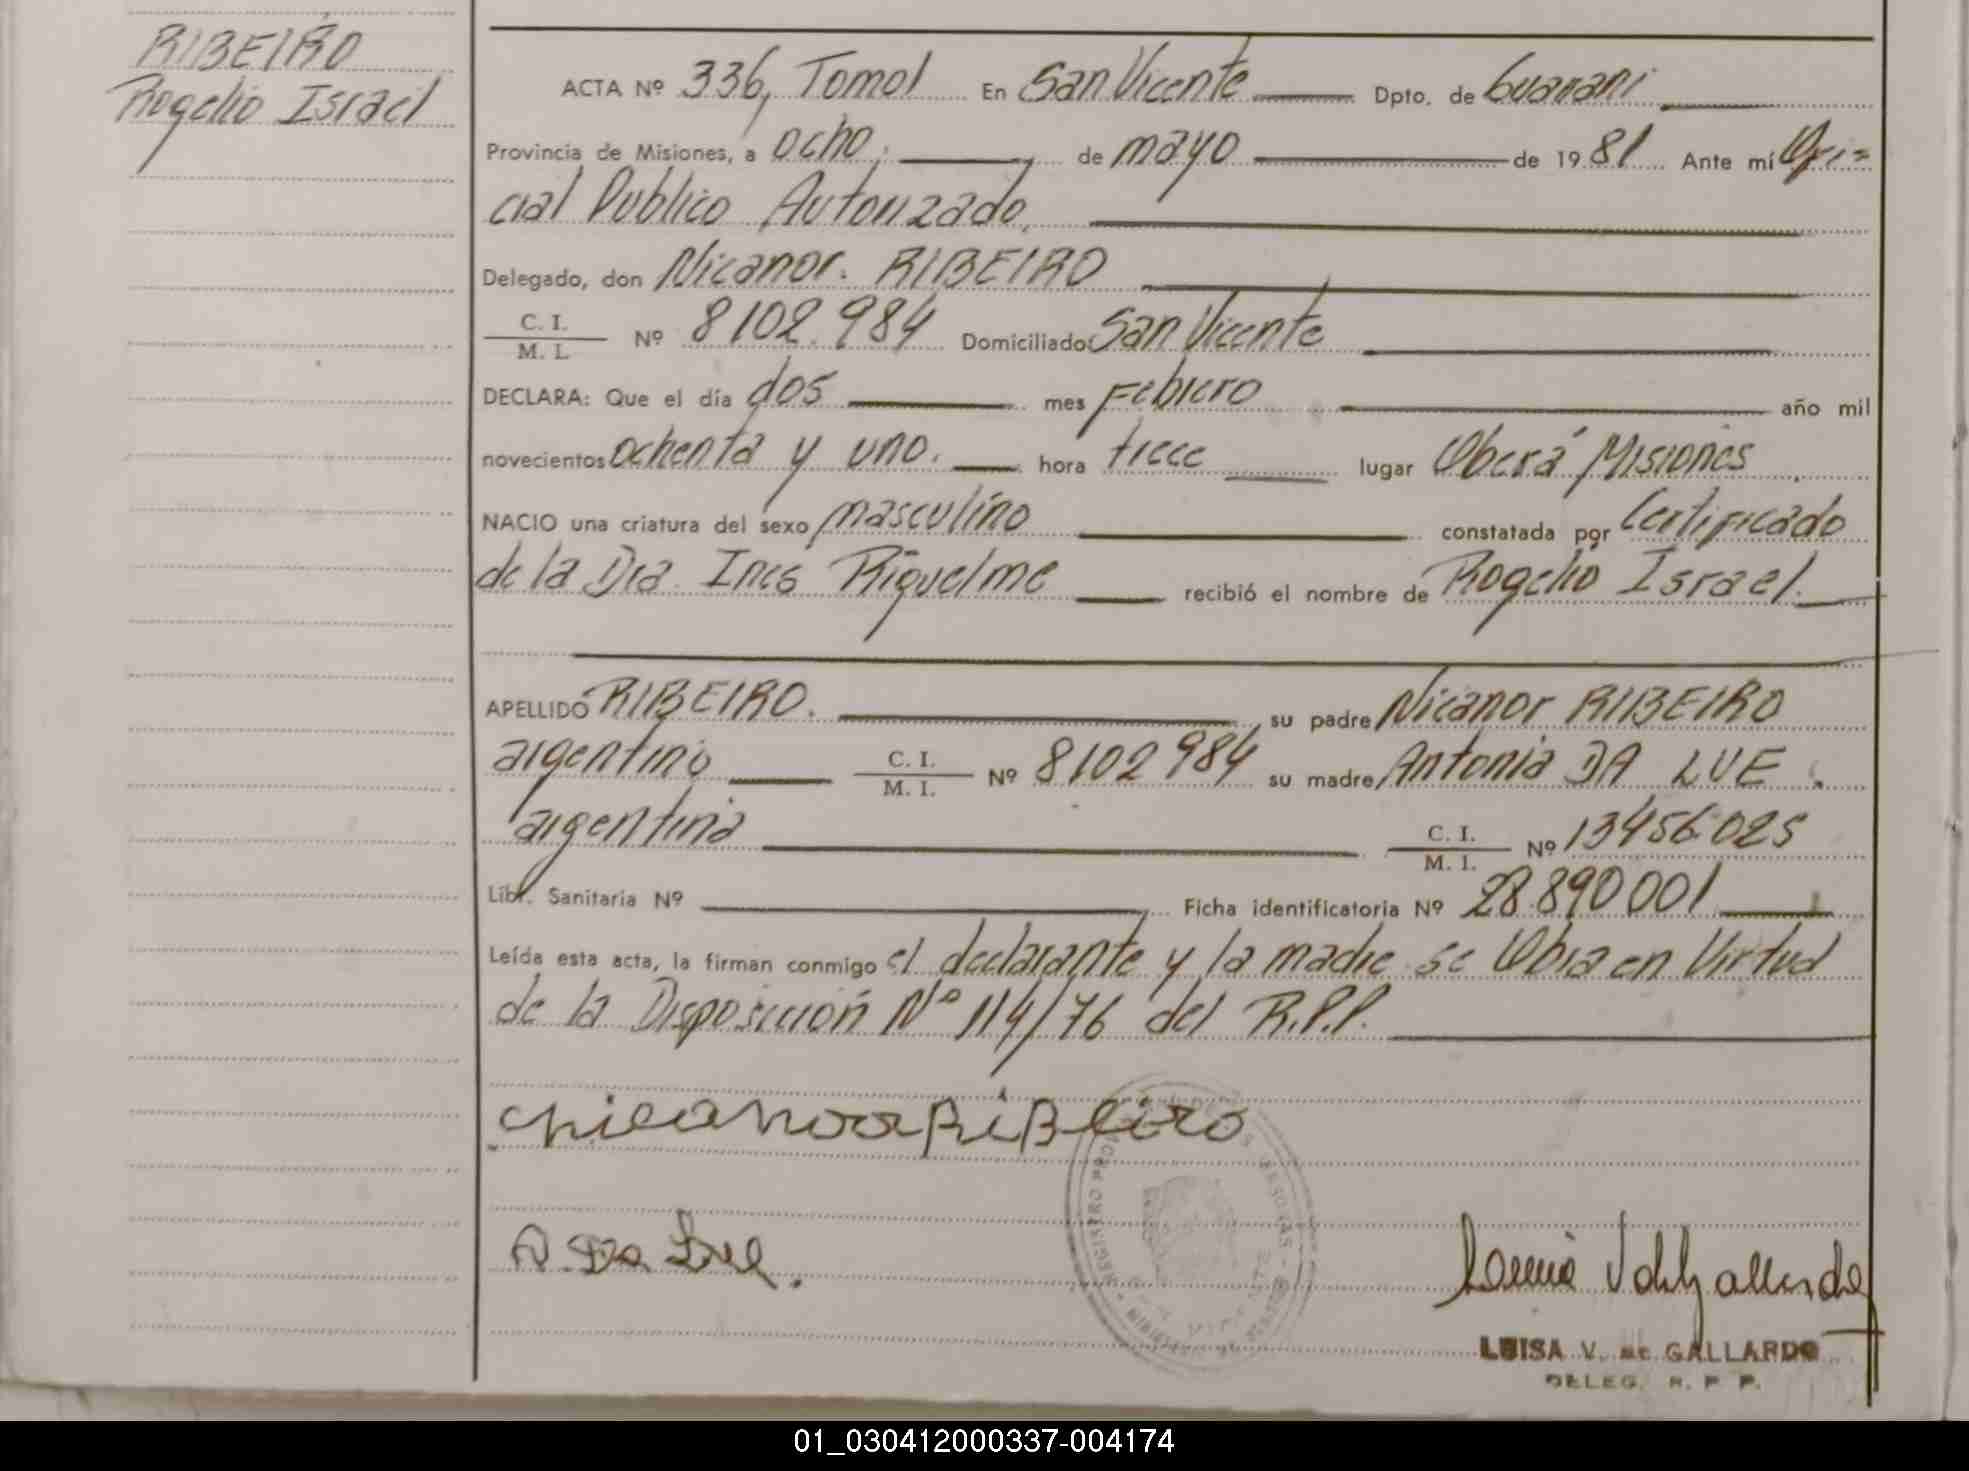 RIBEIRO
Rogelio Israel
ACTA Nº 336, Tomo I En San Vicente Dpto. de Guarani
Provincia de Misiones, a ocho, de mayo de 1981 Ante mí Ofi=
cial Publico Autorizado,
Delegado, don Nicanor. RIBEIRO
C. I.
M. I. Nº 8102.984 Domiciliado San Vicente
DECLARA: Que el día dos mes Febrero año mil
novecientos ochenta y uno. hora trece lugar Oberá Misiones
NACIO una criatura del sexo masculino constatada por Certificado
de la Dra. Ines Riquelme recibió el nombre de Rogelio Israel.
APELLIDO RIBEIRO. su padre Nicanor RIBEIRO
argentino C. I.
M. I. Nº 8102984 su madre Antonia DA LUE.
argentina C. I.
M. I. Nº 13456025
Libr. Sanitaria Nº Ficha identificatoria Nº 28.890001
Leída esta acta, la firman conmigo el declarante y la madre se Obra en Virtud
de la Disposición Nº 114/76 del R.P.P.
RIBEIRO
A. Da Lue.
LUISA V. de GALLARDO
DELEG. R. P. P.
01_030412000337-004174